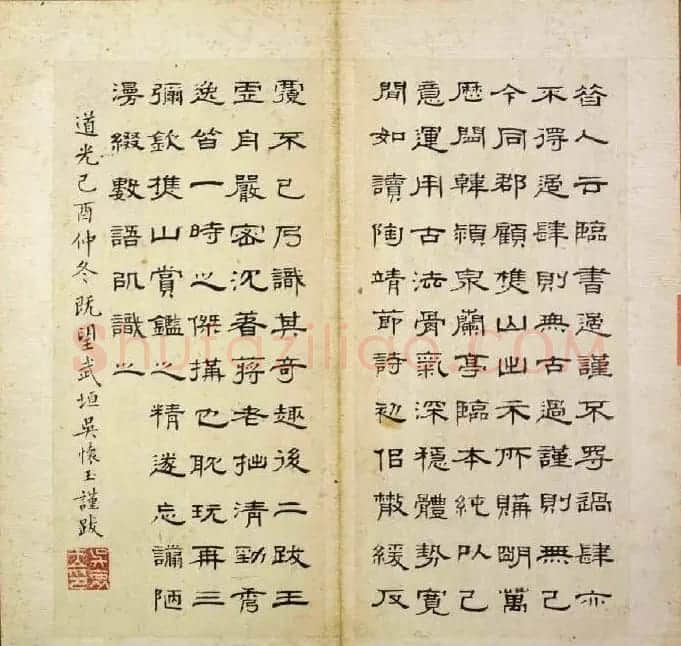 昔人云臨書過謹不得過肆亦
不得過肆則無古過謹則無己
今同郡顧樵山出示所購明萬
歷間韓潁泉蘭亭臨本純以己
意運用古法骨氣深穩體勢寬
間如讀陶靖節詩初似散緩反
覆不已乃識其奇趣後二跋王
虛舟嚴密沉著蔣老拙清勁秀
逸皆一時之傑搆也耽玩再三
彌欽樵山賞鑑之精遂忘譾陋
漫綴數語以識之
道光己酉仲冬既望武垣吳懷玉謹跋
shufaziliao.COM